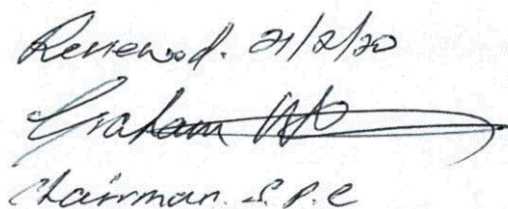 Renewed. 21/2/20
Graham
Chairman. S.P.C